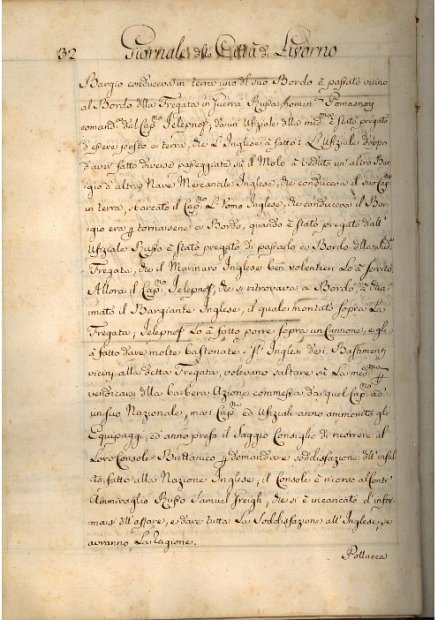 32 Giornale della Città di Livorno
Bargio conduceva in terra uno del suo Bordo è passato vicino
al Bordo dlla Fregata in Guerra Russa
comand.ta dal Cap.no Ielepnof, da un' Ufiziale dlla med.ma è stato pregato
d'essere posto in terra, che L'Inglese à fatto: L'Ufiziale doppo
d'aver fatto diverse passeggiate sù il Molo à veduto un'altro Bar
gio d'altra Nave Mercantile Inglese, che conduceva il suo Cap.no
in terra, sbarcato il Cap.no L'Uomo Inglese, che conduceva il Bar
gio era p tornarsene a Bordo, quando è stato pregato dall'
Ufiziale Russo è stato pregato di passarlo a Bordo dlla
Fregata, che il Marinaro Inglese ben volentieri Lo à servito
Allora il Cap.no Ielepnof, che si ritrovava a Bordo à chia
mato il Bargiante Inglese, il quale montato sopra La
Fregata; Ielepnof Lo à fatto porre sopra un Cannone, e gli
à fatto dare molte bastonate. Gl' Inglesi dei Bastimenti
vicini alla detta Fregata, volevano saltare sù La med.ma p
vendicarsi dlla barbera Azione commessa da quel Cap.no ad
un suo Nazionale, ma i Cap.ni ed Ufiziali anno ammonito gli
Equipaggi, ed anno preso il Saggio Consiglio di ricorrere al
Loro Console Brittanico p domandare soddisfazione dll'
fatto alla Nazione Inglese, il Console è ricorso al Contr'
Ammiraglio Russo Samuel Greigh, che si è incaricato d'infor
marsi dll'affare, e dare tutta La Soddisfazione all'Inglese, se
averanno La ragione.
Pollacca